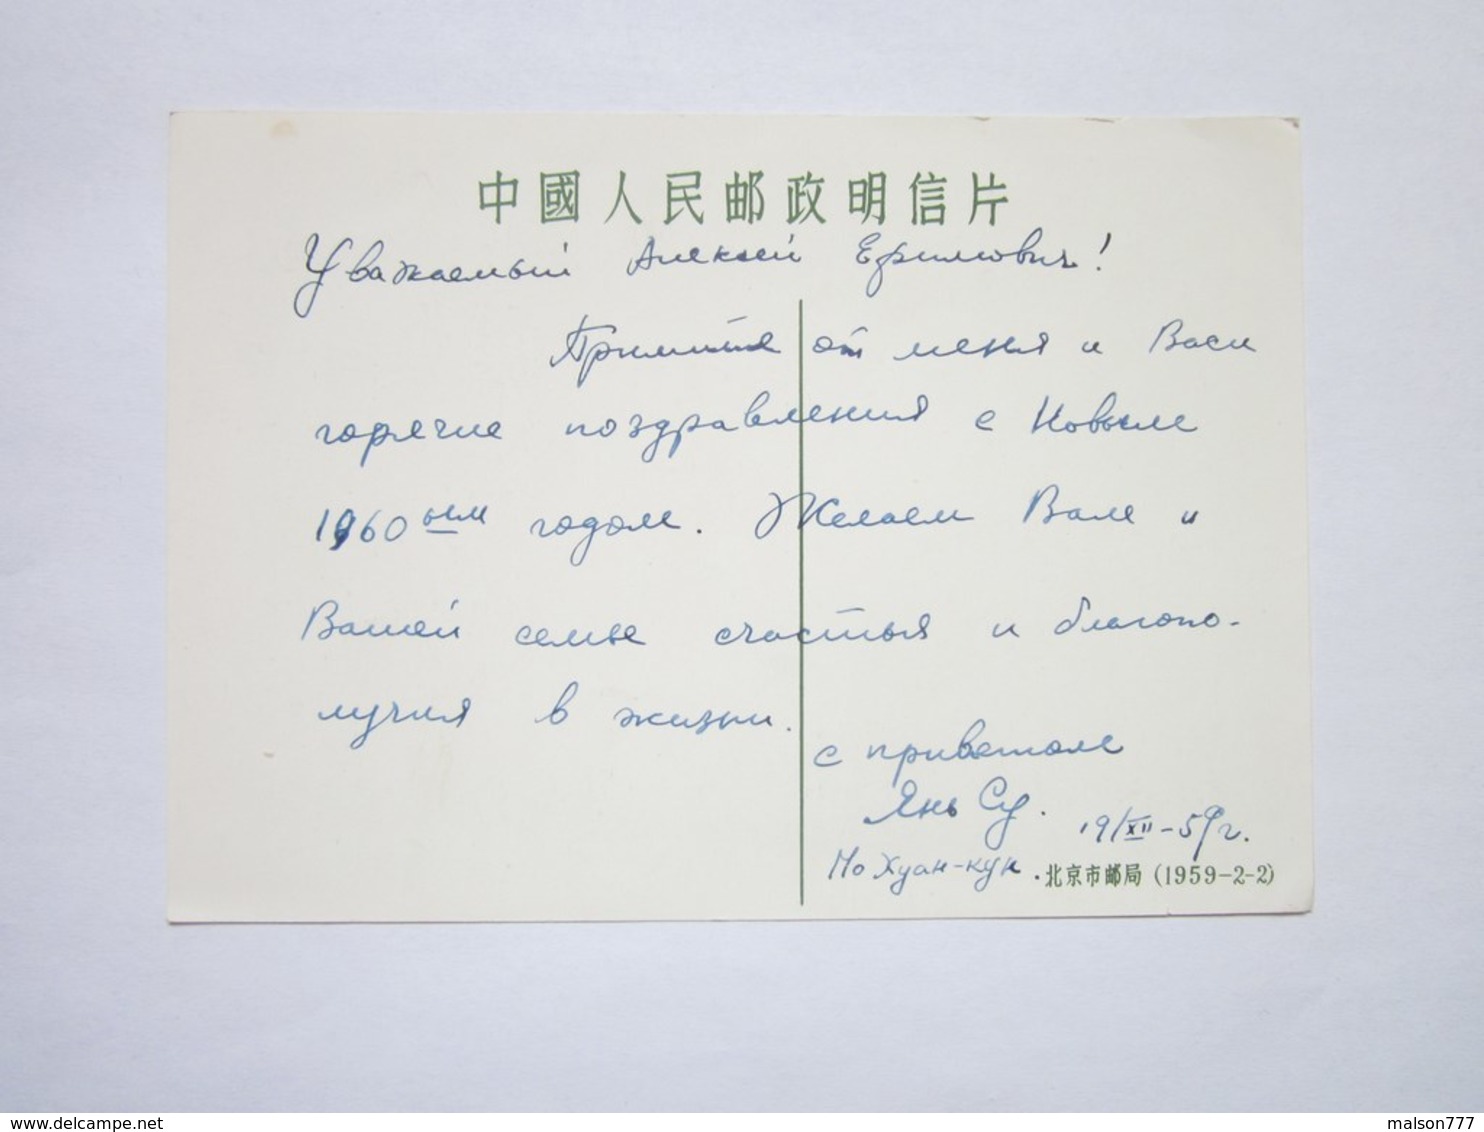 中國人民邮政明信片
Уважаемый Алексей Ефимович!
Примите от меня и Васи
горячие поздравления с Новым
1960ым годом. Желаем Вам и
Вашей семье счастья и благопо-
лучия в жизни.
с приветом
Янь Су.
19/XII-59г.
Мо Хуан-кун.
北京市邮局 (1959-2-2)
delcampe.net
malson777